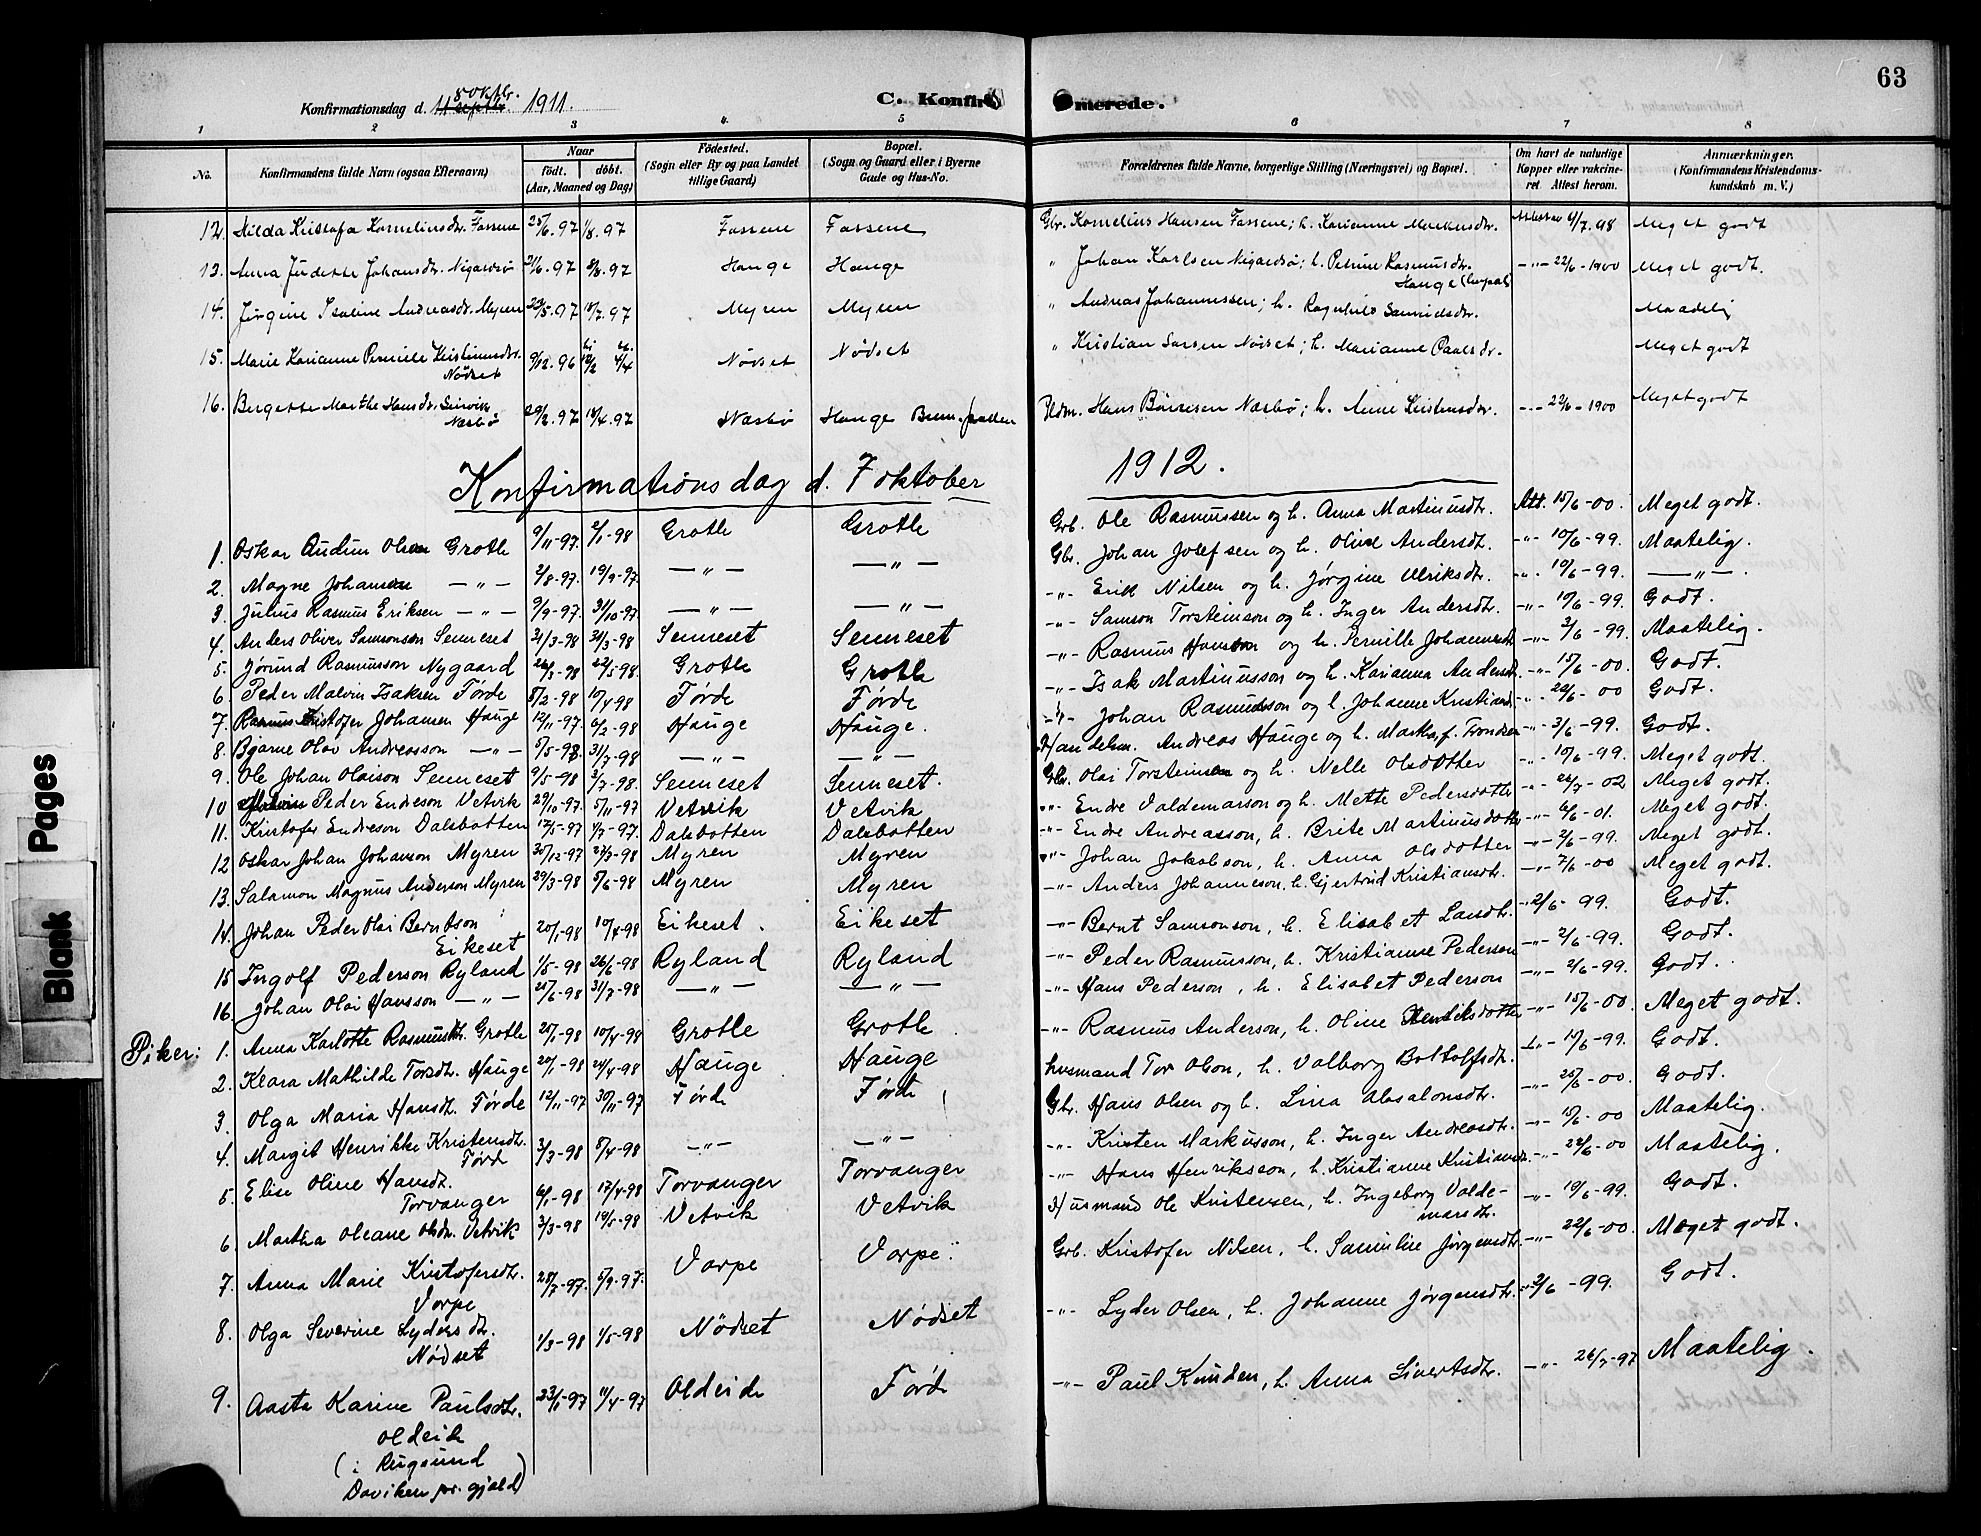 63
Konfirmationsdag d. 8 oktbr. 1911.
C. Konfirmerede.
1 2 3 4 5 6 7 8
No.
Konfirmandens fulde Navn (ogsaa Efternavn)
Naar
født. døbt.
(Aar, Maaned og Dag)
Fødested.
(Sogn eller By og paa Landet
tillige Gaard)
Bopæl.
(Sogn og Gaard eller i Byerne
Gade og Hus-No.
Forældrenes fulde Navne, borgerlige Stilling (Næringsvei) og Bopæl.
Om havt de naturlige
Kopper eller vakcine-
ret. Attest herom.
Anmærkninger.
(Konfirmandens Kristendoms-
kundskab m. V.)
12. Hilda Kristofa Korneliusdr. Fassene 25/6.97 1/8.97 Fassene Fassene Gbr. Kornelius Hansen Fassene; h. Karianne Markusdr. 4/7.98 Meget godt
13. Anna Judette Johansdr. Nigardsø 21/6.97 8/8.97 Hauge Hauge " Johan Karlsen Nigardsø; h. Petrine Rasmusdr. -"- 22/6-1900 Meget godt.
Hauge
14. Jørgine Isaline Andreasdr. Myren 29/5.97 18/7.97 Myren Myren " Andreas Johannessen; h. Ragnhild Samuelsdr. Maadelig
15. Marie Karianne Pernille Kristiansdr. 9/12.96 Nødset Nødset " Kristian Larsen Nødset; h. Marianne Paalsdr. Meget godt
Nødset
16. Bergette Marthe Hansdr. 20/2.97 18/4.97 Næsbø Hauge Hans Børresen Næsbø; h. Anne Kristensdr. -"- 22/6-1900 Meget godt
Næsbø
Konfirmationsdag d. 7 oktober 1912.
1. Oskar Audun Olsen Grotle 9/11-97. 2/1-98 Grotle Grotle Grb. Ole Rasmussen og h. Anna Martinusdtr. Att. 15/6-00. Meget godt.
2. Magne Johansen -"- 2/8-97. 19/9-97. -"- -"- Gbr. Johan Josefsen og h. Oline Andersdt. -"- 10/6-99. Maatelig.
3. Julius Rasmus Eriksen -"- 9/9-97. 31/10-97. -"- -"- -"- Erik Nilsen og h. Jørgine Ulriksdtr. -"- 10/6-99. -"-.
4. Anders Oliver Samsonson Senneset 21/3-98 31/3-98 Senneset Senneset -"- Samson Torsteinson og h. Inger Andersdtr. -"- 10/6-99. Godt.
5. Jørund Rasmusson Nygaard 26/3-98 22/5-98. Grotle Grotle -"- Rasmus Hansson og h. Pernille Johannesdt. -"- 3/6-99. Maatelig.
6 Peder Malvin Isaksen Førde 5/2-98 10/4-98 Førde Førde -"- Isak Martinusson og h. Karianna Andersdt. -"- 15/6-00. Godt.
7. Rasmus Kristofer Johansen Hauge 12/11-97. 6/2-98 Hauge Hauge. -"- Johan Rasmusson og h. Johanne Kristiansd. -"- 22/6-00 Godt.
8. Bjarne Olav Andreasson -"- 5/5-98. 31/7-98 -"- -"- Handelsm. Andreas Hauge og h. Marta f. Trondsen -"- 3/6-99. Godt.
9. Ole Johan Olaison Senneset 9/5-98 3/7-98. Senneset Senneset. Gbr. Olai Torsteinsen og h. Nelle Olsdotter -"- 10/6-99. Meget godt.
10 Malvin Peder Endreson Vetvik 29/10-97. 5/11-97 Vetvik Vetvik -"- Endre Valdemarson og h. Mette Pedersdotter -"- 24/7-02 Meget godt.
11. Kristofer Endreson Dalsbotten 12/5-97 1/7-97. Dalsbotten Dalsbotten -"- Endre Andreasson, h. Brite Martinusdotter -"- 6/6-01. Meget godt.
12 Oskar Johan Johanson Myren 30/12-97 27/3-98 Myren Myren -"- Johan Jakobson, h. Anna Olsdotter -"- 2/6-99. Meget godt.
13. Salamon Magnus Anderson Myren 29/3-98 5/6-98 Myren Myren -"- Anders Johanneson, h. Gjertrud Kristiansdt. -"- 7/6-00 Meget godt.
14. Johan Peder Olai Berntson 20/1-98 10/4-98 Eikeset. Eikeset -"- Bernt Samsonson, h. Elisabet Larsdtr. -"- 2/6-99. Godt.
Eikeset
15 Ingolf Pederson Ryland 1/5-98 26/6-98 Ryland Ryland -"- Peder Rasmusson, h. Kristianse Pederson -"- 2/6-99. Godt.
16. Johan Olai Hansson -"- 25/6-98 31/7-98 -"- -"- -"- Hans Pederson, h. Elisabet Pederson -"- 2/6-99. Godt.
Piker: 1. Anna Karlotte Rasmusdt. Grotle 25/1-98 10/4-98 Grotle Grotle -"- Rasmus Anderson, h. Oline Henriksdotter -"- 15/6-00. Meget godt.
2. Klara Mathilde Torsdt. Hauge 20/1-98 24/4-98 Hauge Hauge husmand Tor Olson, h. Valborg Bottolfsdt. -"- 10/6-99. Godt.
3. Olga Maria Hansdt. Førde 12/11-97 30/11-97 Førde Førde Gbr. Hans Olsen og h. Lina Absalonsdt. -"- 25/6-00. Godt.
4. Margit Henrikke Kristensdtr. 3/3-98 8/4-98 -"- -"- -"- Kristen Markusson, h. Inger Andreasdtr. -"- 15/6-00 Maatelig.
Førde
5. Elise Oline Hansdt. 6/1-98 17/4-98 Torvanger Torvanger -"- Hans Henriksson, h. Kristianne Kristiansdt. -"- 22/6-00 Maatelig.
Torvanger
6. Martha Oleane Olsdr. Vetvik 3/3-98 19/5-98 Vetvik Vetvik Husmand Ole Kristensen, h. Ingeborg Valde- -"- 19/6-99. Godt.
marsdt.
7. Anna Marie Kristofersdt. 25/7-97. 5/9-97. Varpe Varpe Grb. Kristofer Nilsen, h. Sanneline Jørgensdt. -"- 22/6-00. Meget godt.
Varpe
8. Olga Severine Lydersdt. 1/3-98 1/5-98 Nødset Nødset -"- Lyder Olsen, h. Johanne Jørgensdtr. -"- 2/6-99. Godt.
Nødset
9. Aasta Karine Paulsdtr. 23/1-97 11/4-97 Oldeide Førde -"- Paul Knuden, h. Anna Sivertsdtr. -"- 26/7-97 Maatelig.
Oldeide
(i Rugsund
Daviken pr.gjeld)
Blank Pages